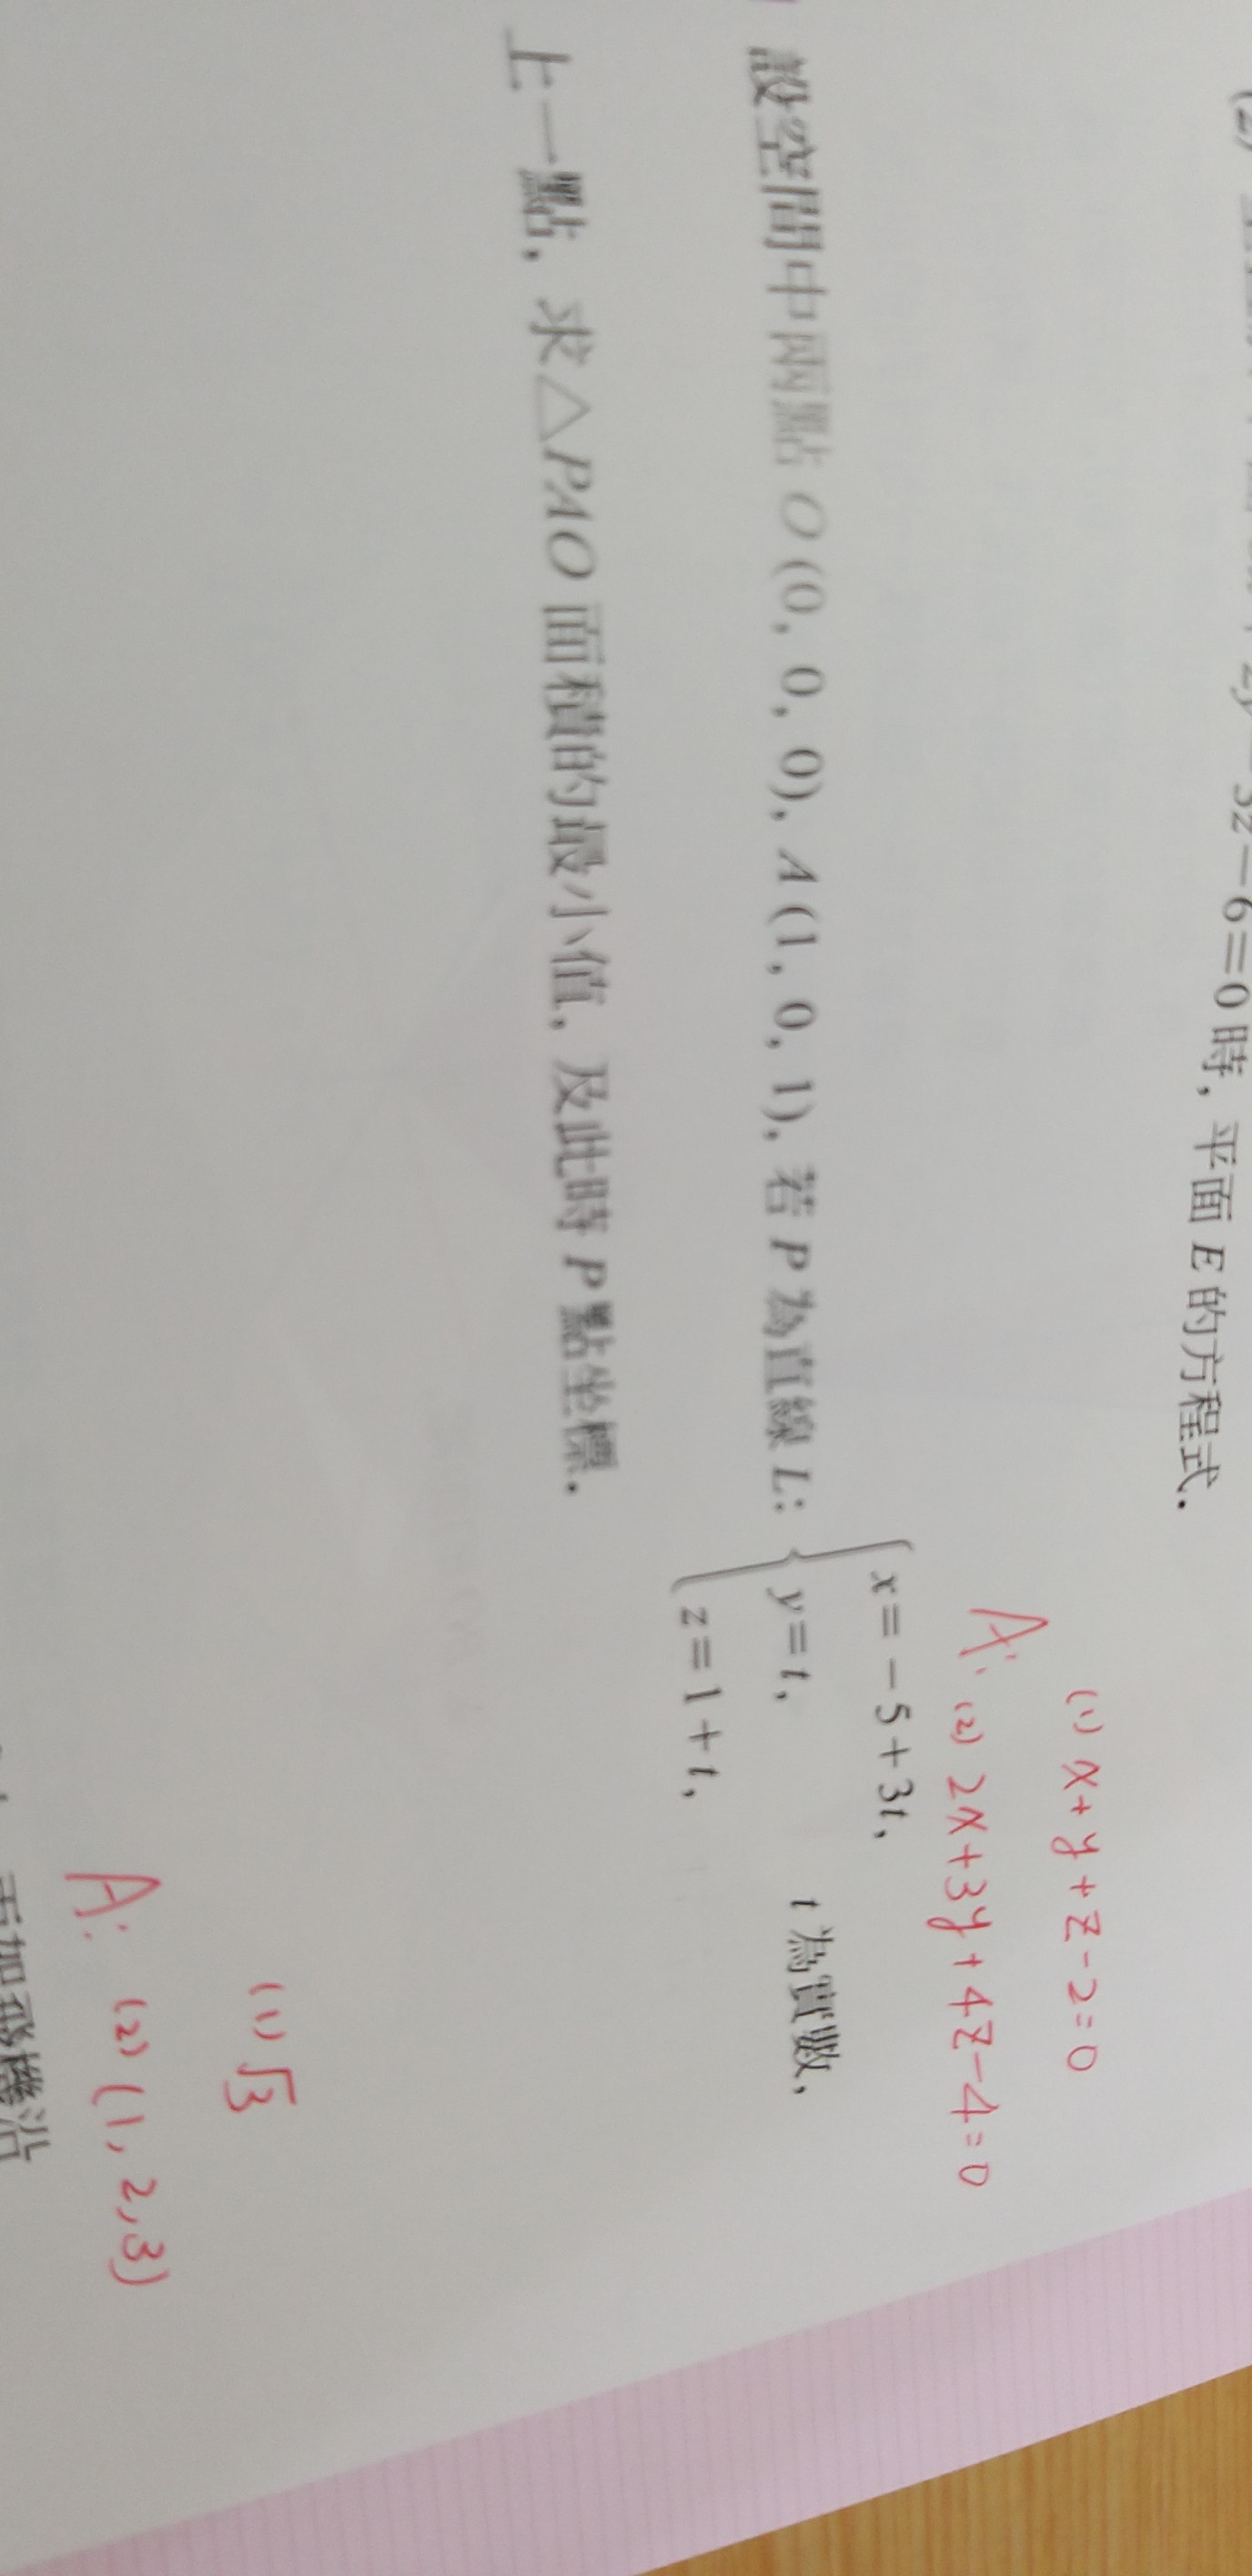 3z－6＝0 時，平面 E 的方程式．
(1) x+y+z-2=0
A: (2) 2x+3y+4z-4=0
設空間中兩點 O (0, 0, 0)，A (1, 0, 1)，若 P 為直線 L：{ x＝－5＋3t, y＝t, z＝1＋t, t 為實數，
上一點，求△PAO 面積的最小值，及此時 P 點坐標．
(1) √3
A: (2) (1, 2, 3)
飛機沿